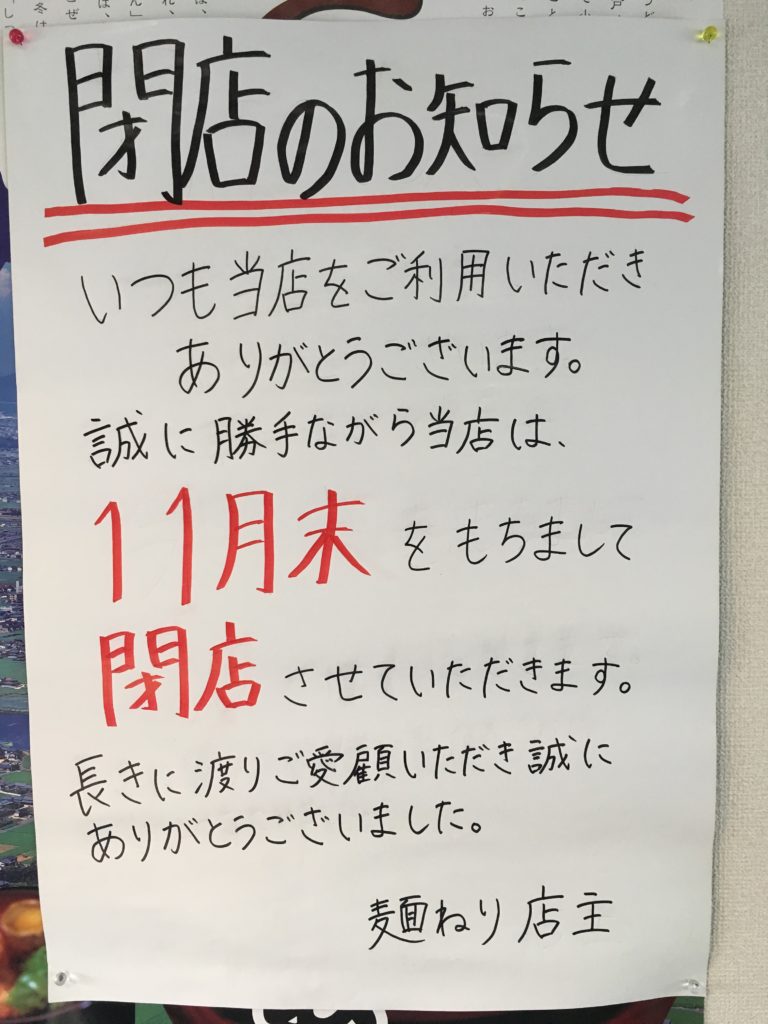 閉店のお知らせ
いつも当店をご利用いただき
ありがとうございます。
誠に勝手ながら当店は、
11月末をもちまして
閉店させていただきます。
長きに渡りご愛顧いただき誠に
ありがとうございました。
麺ねり店主